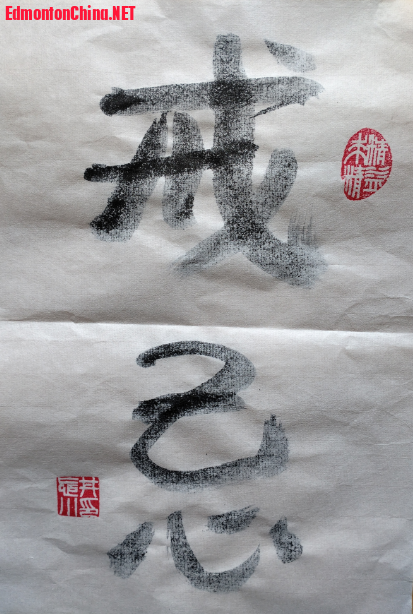 EdmontonChina.NET
戒
精益求精
忌